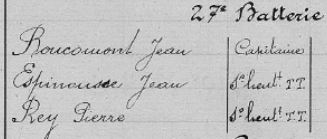 27e Batterie
Roucomont Jean Capitaine
Espinousse Jean Ss lieutt T.T.
Rey Pierre Ss lieutt T.T.